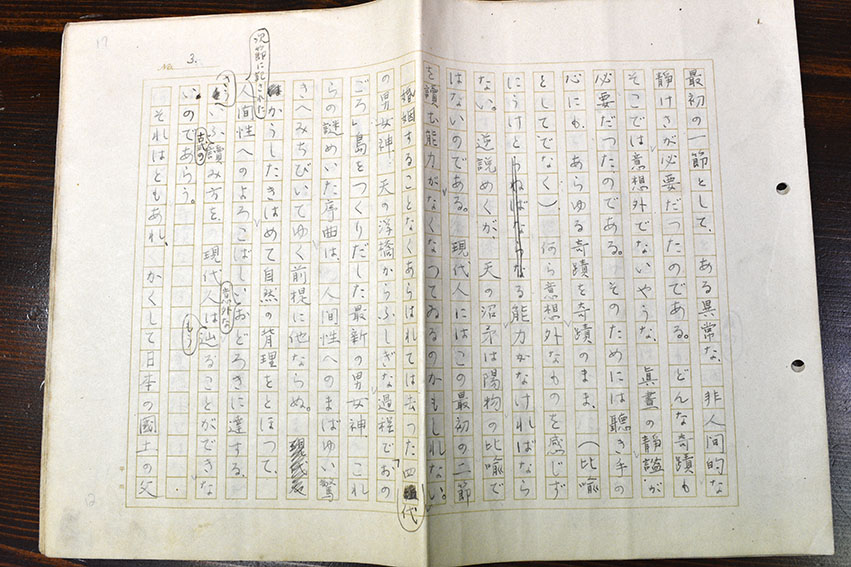 17
No. 3.
最初の一節として、ある異常な、非人間的な
静けさが必要だつたのである。どんな奇蹟も
そこでは意想外でないやうな、眞晝の静謐が
必要だつたのである。そのためには聽き手の
心にも、あらゆる奇蹟を奇蹟のまま、(比喩
としてでなく)、何ら意想外なものを感じず
にうけとる能力がなければなら
ない。逆説めくが、天の沼矛は陽物の比喩で
はないのである。現代人にはこの最初の二節
を讀む能力がなくなつてゐるのかもしれない。
婚姻することなくあらはれては去つた四代
の男女神、天の浮橋からふしぎな過程で「おの
ごろ」島をつくりだした最新の男女神、これ
らの謎めいた序曲は、人間性へのまばゆい驚
きへみちびいてゆく前提に他ならぬ。
かうしたきはめて自然の背理をとほつて、
次節に記された人間性へのよろこばしい意外なおどろきに達する、
さういふ讀み方を、現代人はもう辿ることができな
いのであらう。
それはともあれ、かくして日本の國土の父